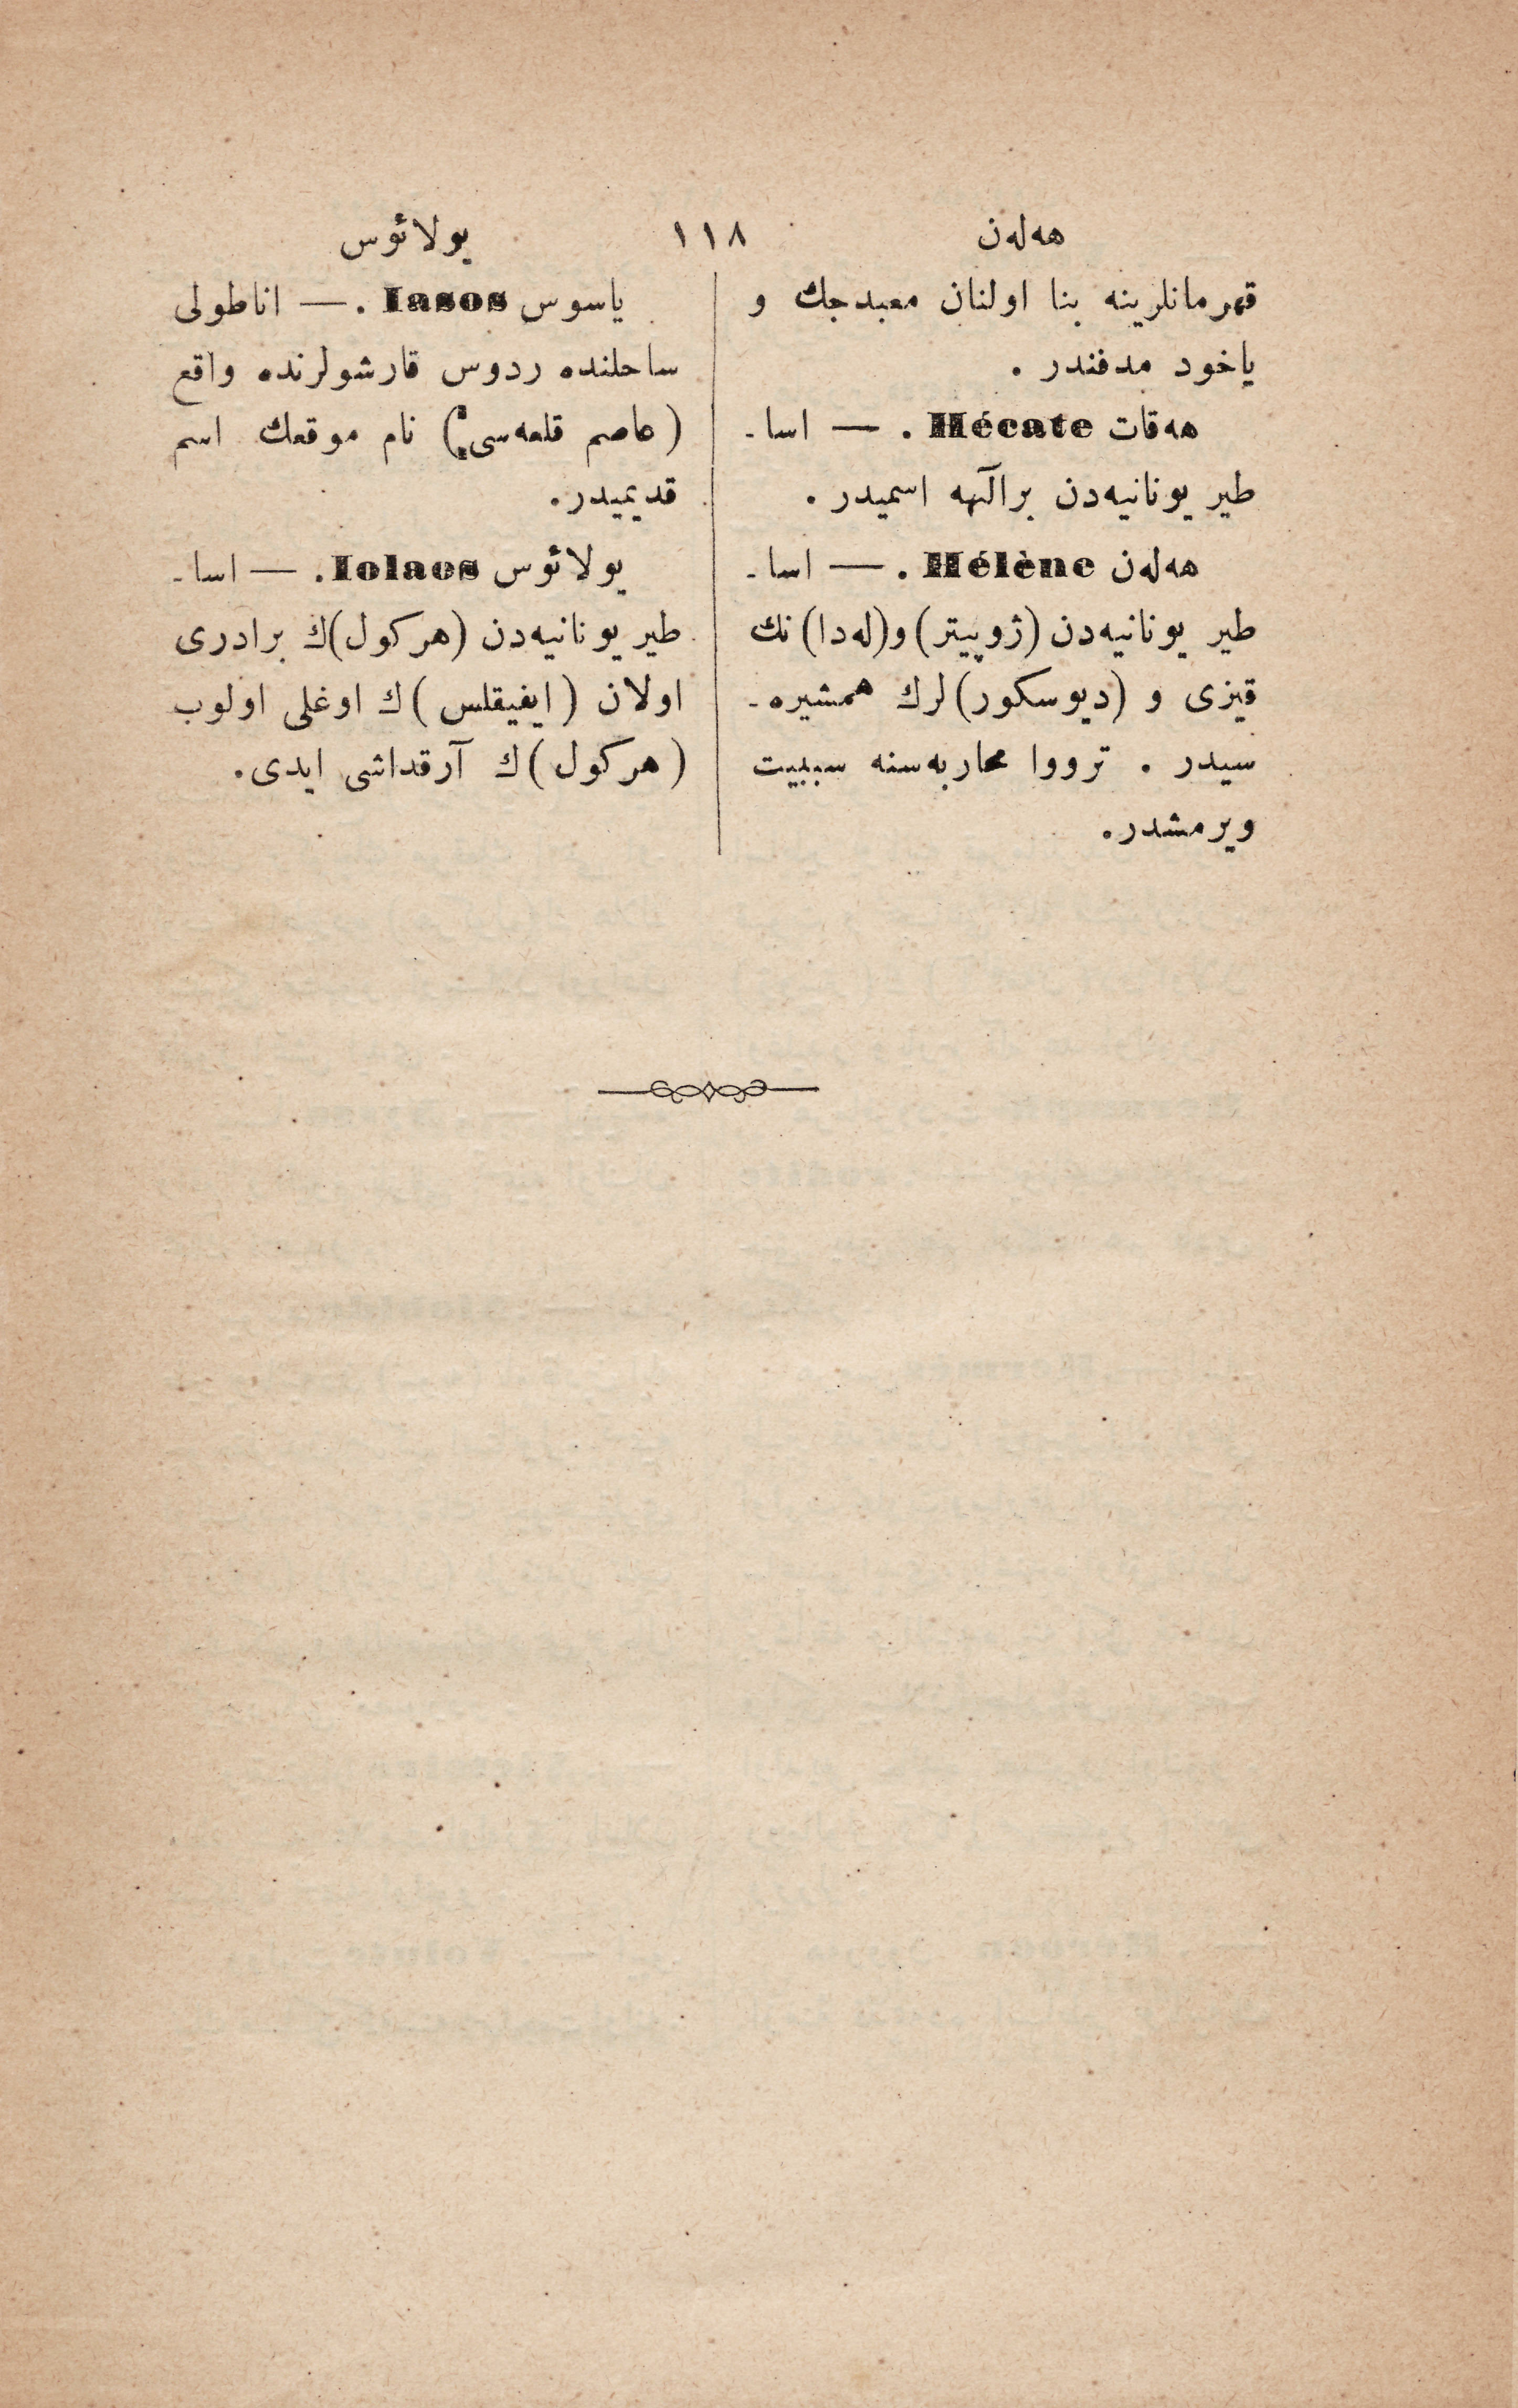 هه‌له‌ن ١١٨ يولائوس
قهرمانلرينه بنا اولنان معبدجك و
ياخود مدفندر .
هه‌قات Hécate . — اسا-
طير يونانيه‌دن برآلهه اسميدر .
هه‌له‌ن Hélène . — اسا-
طير يونانيه‌دن (ژوپيتر) و(له‌دا) نك
قيزى و (ديوسكور) لرك همشيره-
سيدر . ترووا محاربه‌سنه سببيت
ويرمشدر.
ياسوس Iasos . — اناطولى
ساحلنده ردوس قارشولرنده واقع
(عاصم قلعه‌سى) نام موقعك اسم
قديميدر.
يولائوس Iolaos . — اسا-
طير يونانيه‌دن (هركول)ك برادرى
اولان (ايفيقلس)ك اوغلى اولوب
(هركول)ك آرقداشى ايدى.